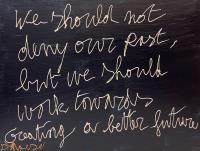 We should not
deny our past,
but we should
work towards
Creating a better future